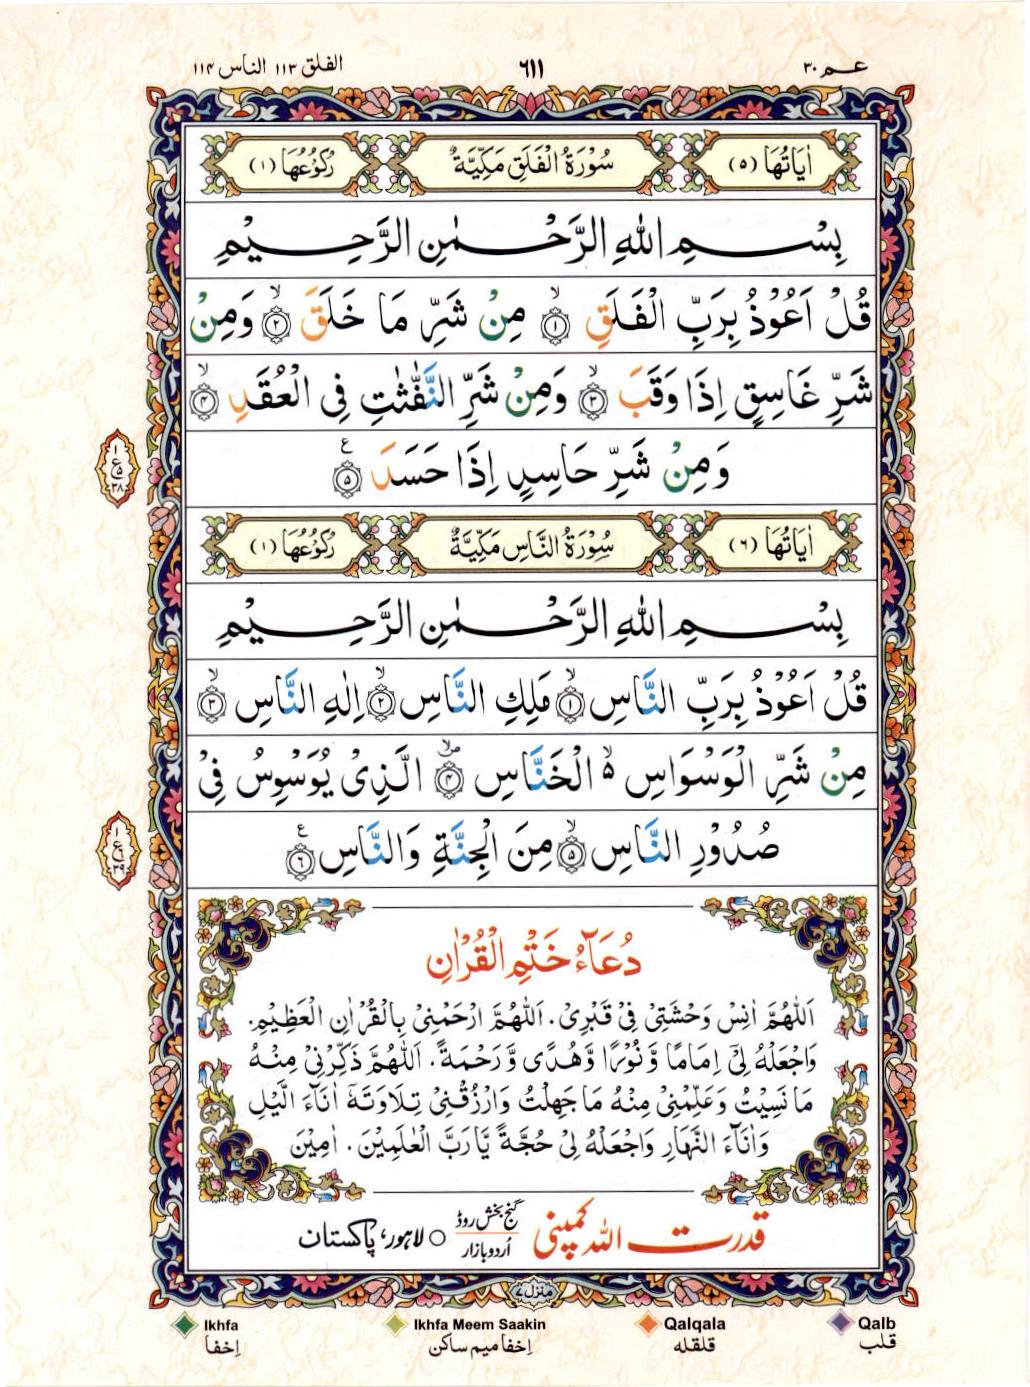 الفلق ۱۱۳ الناس ۱۱۴
٦١١
عم ۳۰
اٰیَاتُهَا (۵)
سُوْرَةُ الْفَلَقِ مَكِّیَّةٌ
رُكُوْعُهَا (۱)
بِسْمِ اللهِ الرَّحْمٰنِ الرَّحِیْمِ
قُلْ اَعُوْذُ بِرَبِّ الْفَلَقِ ۙ۱ مِنْ شَرِّ مَا خَلَقَ ۙ۲ وَمِنْ
شَرِّ غَاسِقٍ اِذَا وَقَبَ ۙ۳ وَمِنْ شَرِّ النَّفّٰثٰتِ فِی الْعُقَدِ ۙ۴
وَمِنْ شَرِّ حَاسِدٍ اِذَا حَسَدَ ۵ ع
۱
ع ۵
۳۸
اٰیَاتُهَا (٦)
سُوْرَةُ النَّاسِ مَكِّیَّةٌ
رُكُوْعُهَا (۱)
بِسْمِ اللهِ الرَّحْمٰنِ الرَّحِیْمِ
قُلْ اَعُوْذُ بِرَبِّ النَّاسِ ۙ۱ مَلِكِ النَّاسِ ۙ۲ اِلٰهِ النَّاسِ ۙ۳
مِنْ شَرِّ الْوَسْوَاسِ ۙ۬ الْخَنَّاسِ ۴ الَّذِیْ یُوَسْوِسُ فِیْ
صُدُوْرِ النَّاسِ ۙ۵ مِنَ الْجِنَّةِ وَالنَّاسِ ٦ ع
۱
ع ٦
۳۹
دُعَآءُ خَتْمِ الْقُرْاٰنِ
اَللّٰهُمَّ اٰنِسْ وَحْشَتِیْ فِیْ قَبْرِیْ. اَللّٰهُمَّ ارْحَمْنِیْ بِالْقُرْاٰنِ الْعَظِیْمِ.
وَاجْعَلْهُ لِیْٓ اِمَامًا وَّنُوْرًا وَّهُدًی وَّرَحْمَةً. اَللّٰهُمَّ ذَكِّرْنِیْ مِنْهُ
مَا نَسِیْتُ وَعَلِّمْنِیْ مِنْهُ مَا جَهِلْتُ وَارْزُقْنِیْ تِلَاوَتَهٗٓ اٰنَآءَ الَّیْلِ
وَاٰنَآءَ النَّهَارِ وَاجْعَلْهُ لِیْ حُجَّةً یَّا رَبَّ الْعٰلَمِیْنَ. اٰمِیْنَ
قدرت اللہ کمپنی گنج بخش روڈ اُردو بازار ○ لاہور، پاکستان
منزل ۷
Ikhfa
Ikhfa Meem Saakin
Qalqala
Qalb
اِخفا
اِخفا میم ساکن
قلقله
قلب